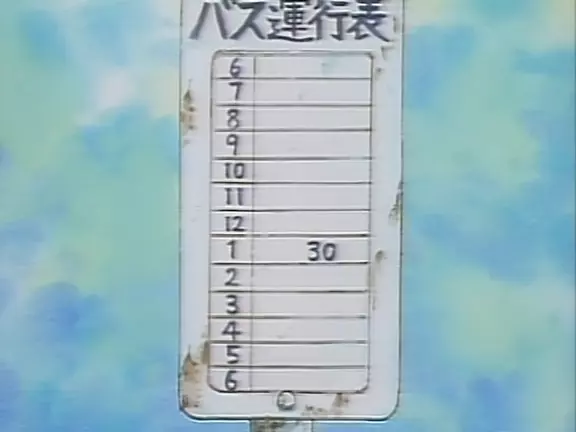 バス運行表
6
7
8
9
10
11
12
1 30
2
3
4
5
6